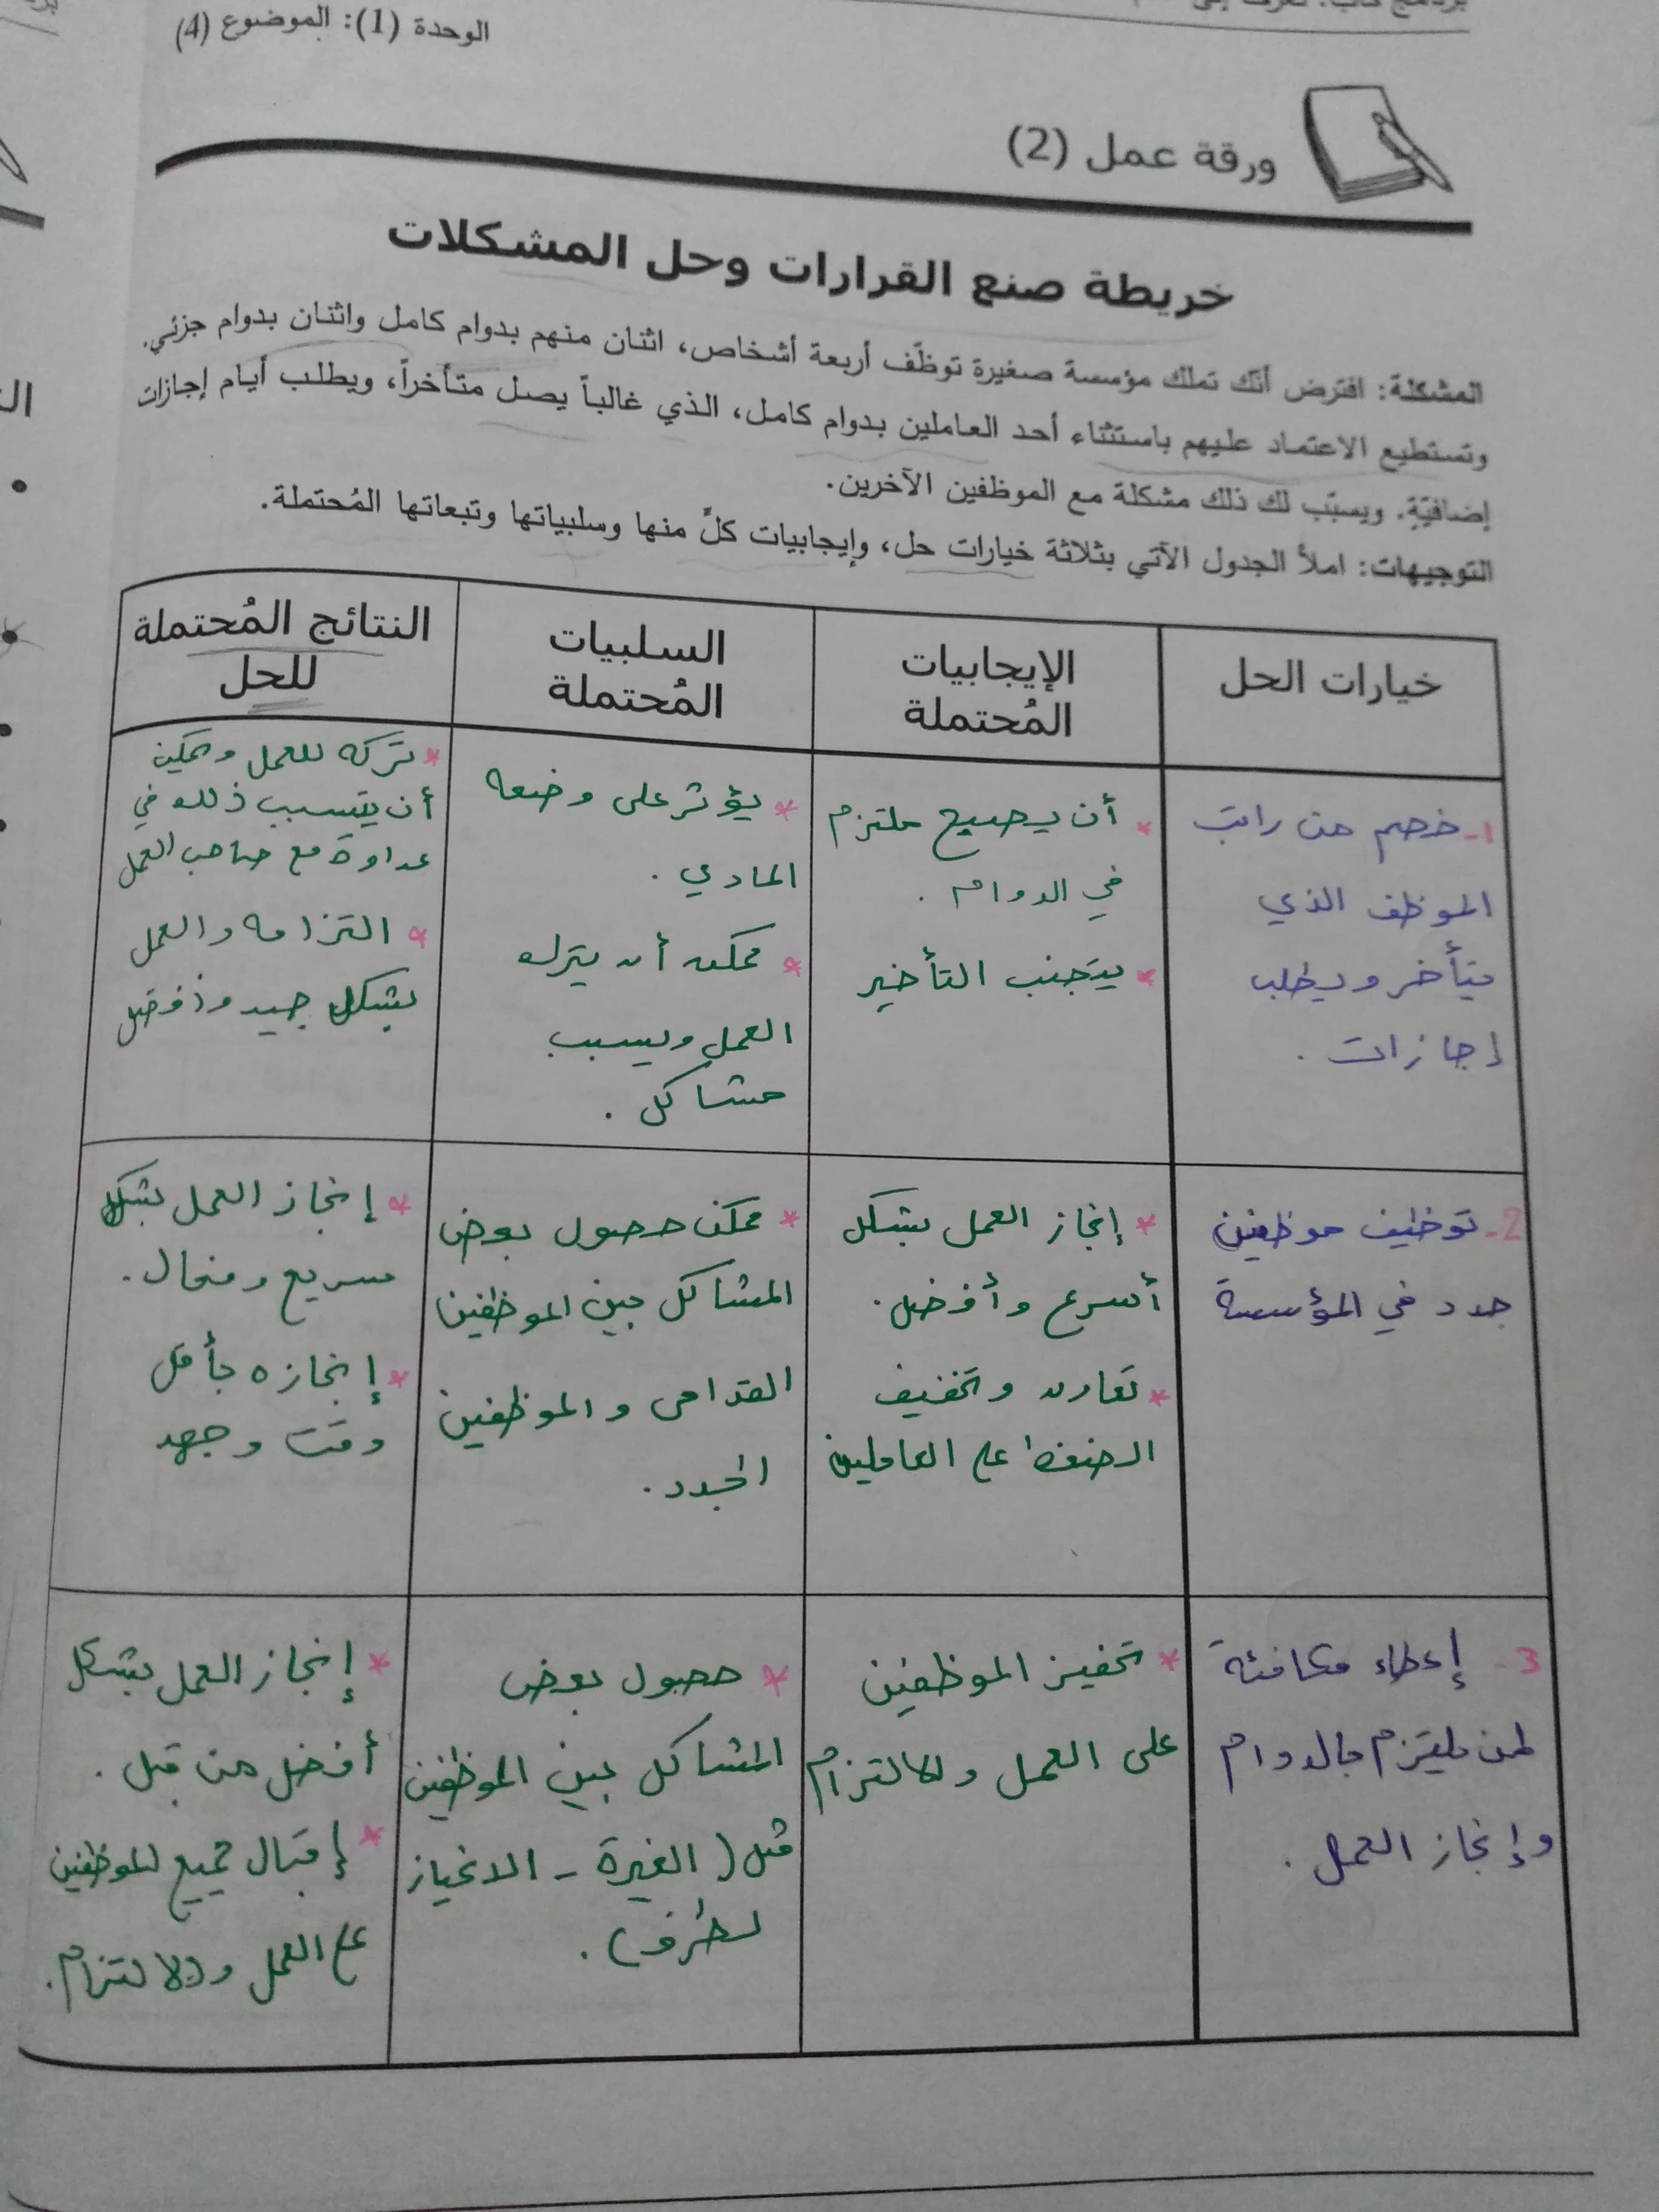 الوحدة (1): الموضوع (4)
ورقة عمل (2)
خريطة صنع القرارات وحل المشكلات
المشكلة: افترض أنك تملك مؤسسة صغيرة توظّف أربعة أشخاص، اثنان منهم بدوام كامل واثنان بدوام جزئي.
وتستطيع الاعتماد عليهم باستثناء أحد العاملين بدوام كامل، الذي غالباً يصل متأخراً، ويطلب أيام إجازات
إضافيّةٍ. ويسبّب لك ذلك مشكلة مع الموظفين الآخرين.
التوجيهات: املأ الجدول الآتي بثلاثة خيارات حل، وإيجابيات كلٍّ منها وسلبياتها وتبعاتها المُحتملة.
خيارات الحل
الإيجابيات
المُحتملة
السلبيات
المُحتملة
النتائج المُحتملة
للحل
1- خصم من راتب
الموظف الذي
يتأخر ويطلب
إجازات .
* أن يصبح ملتزم
في الدوام .
* يتجنب التأخير
* يؤثر على وضعه
المادي .
* ممكن أن يترك
العمل ويسبب
مشاكل .
* تركه للعمل وممكن
أن يتسبب ذلك في
عداوة مع صاحب العمل
* التزامه والعمل
بشكل جيد وأفضل
2- توظيف موظفين
جدد في المؤسسة
* إنجاز العمل بشكل
أسرع وأفضل .
* تعاون وتخفيف
الضغط على العاملين
* ممكن حصول بعض
المشاكل بين الموظفين
القدامى والموظفين
الجدد .
* إنجاز العمل بشكل
سريع وفعال .
* إنجازه بأقل
وقت وجهد
3- إعطاء مكافئة
لمن يلتزم بالدوام
وإنجاز العمل .
* تحفيز الموظفين
على العمل والالتزام
* حصول بعض
المشاكل بين الموظفين
مثل (الغيرة - الانحياز
لطرف) .
* إنجاز العمل بشكل
أفضل من قبل .
* إقبال جميع الموظفين
على العمل والالتزام .